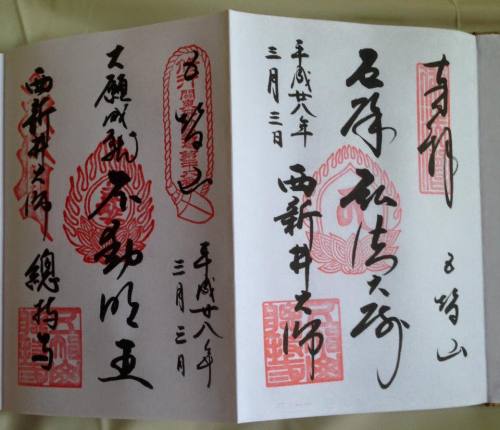 奉拝 五智山
厄除 弘法大師
西新井大師
平成廿八年
三月三日
五智山
平成廿八年
三月三日
大願成就 不動明王
西新井大師 總持寺